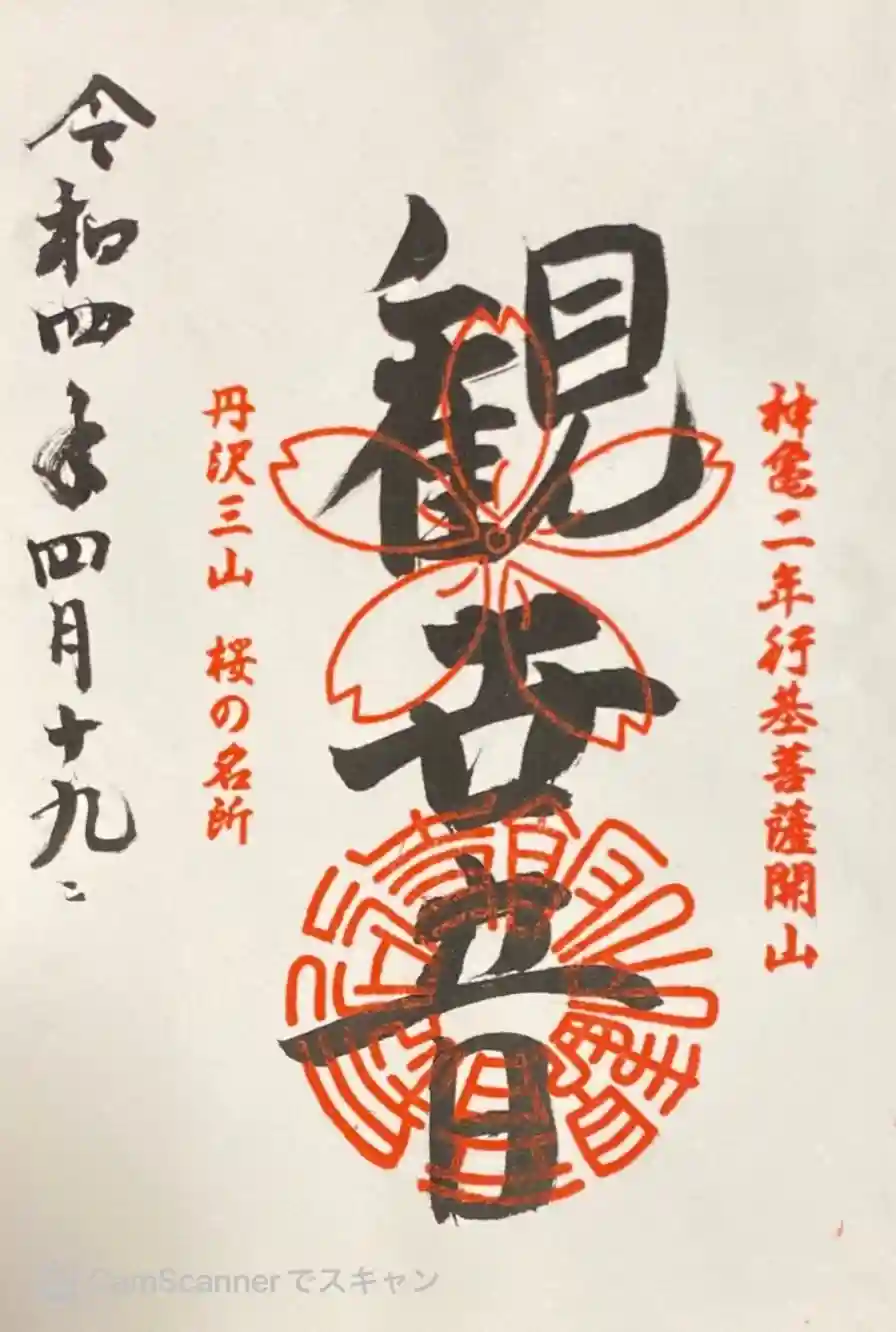 神亀二年行基菩薩開山
観世音
丹沢三山 桜の名所
令和四年四月十九
CamScanner でスキャン